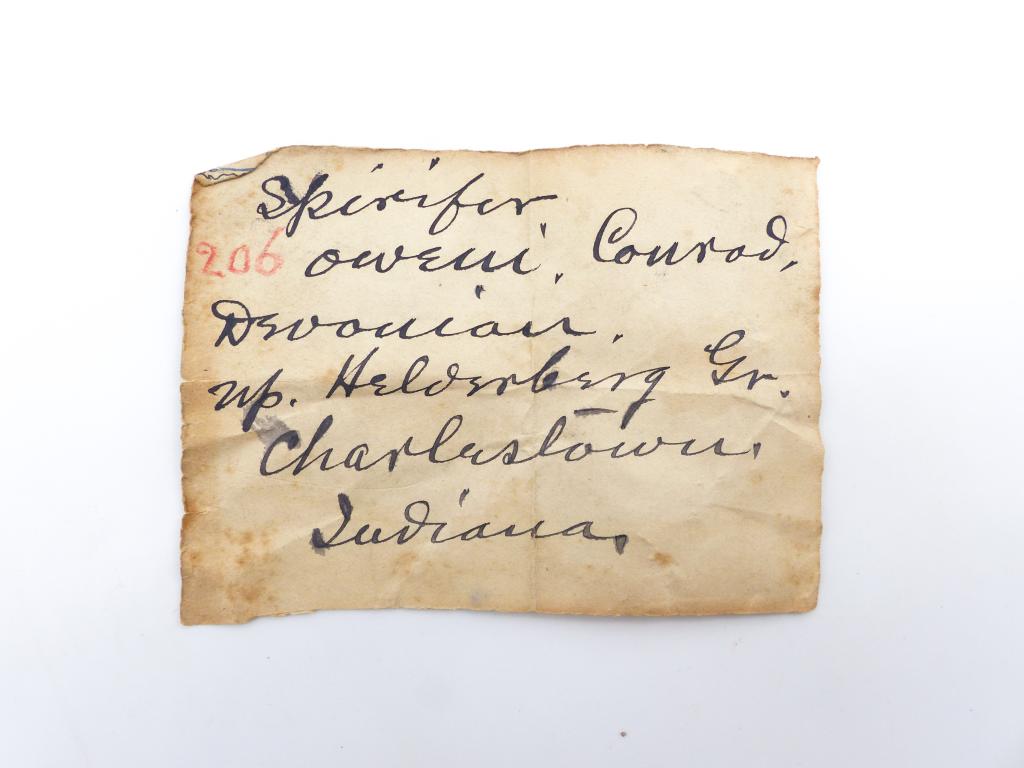 Spirifer
206 oweni. Conrad,
Devonian.
up. Helderberg Gr.
Charlestown.
Indiana.